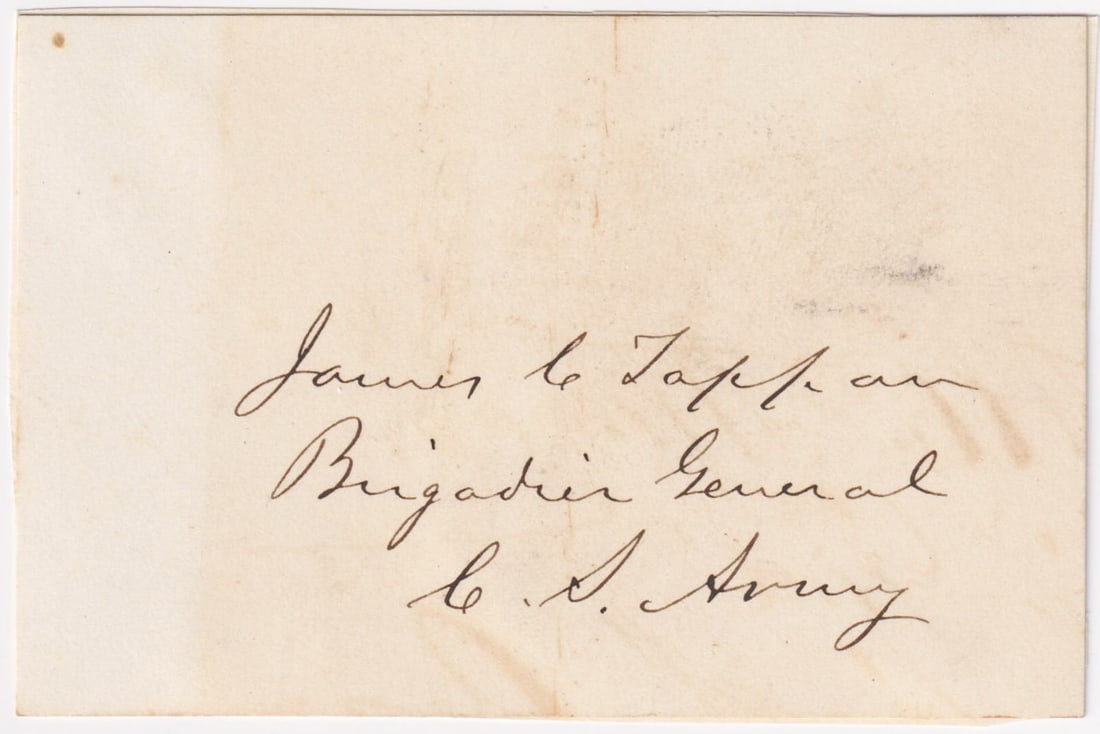 James C Tappan
Brigadier General
C. S. Army